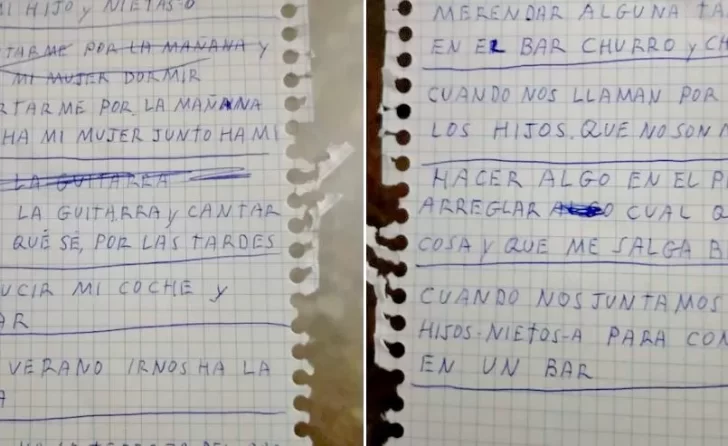 MI HIJO y NIETAS-O
TARME POR LA MAÑANA y
MI MUJER DORMIR
RTARME POR LA MAÑANA
HA MI MUJER JUNTO HA MI
LA GUITARRA
LA GUITARRA y CANTAR
QUÉ SÉ, POR LAS TARDES
UCIR MI COCHE y
AR
VERANO IRNOS HA LA
A
MERENDAR ALGUNA TA
EN EL BAR CHURRO y CH
CUANDO NOS LLAMAN POR
LOS HIJOS. QUE NO SON M
HACER ALGO EN EL P
ARREGLAR ALGO CUAL Q
COSA y QUE ME SALGA B
CUANDO NOS JUNTAMOS
HIJOS-NIETOS-A PARA COM
EN UN BAR